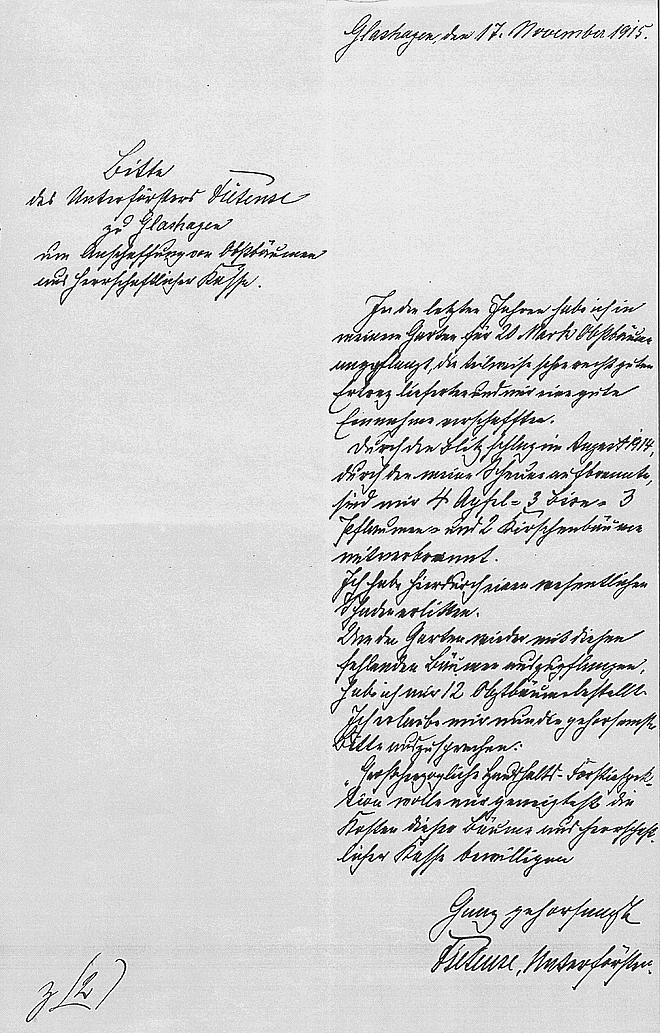 Glashagen, den 17. November 1915.
Bitte
des Unterförsters Tietense
zu Glashagen
um Anschaffung von Obstbäumen
aus herrschaftlicher Kasse.
In den letzten Jahren habe ich in
meinem Garten für 20 Mark Obstbäume
angepflanzt, die teilweise schon recht guten
Ertrag lieferten und mir eine gute
Einnahme verschafften.
Durch den Blitzschlag im August 1914,
durch den meine Scheune aufbrannte,
sind mir 4 Apfel- 3 Birn- 3
Pflaumen- und 2 Kirschenbäume
mitverbrannt.
Ich habe hierdurch einen wesentlichen
Schaden erlitten.
Um den Garten wieder mit diesen
fehlenden Bäumen auszupflanzen,
habe ich mir 12 Obstbäume bestellt.
Ich erlaube mir nun die gehorsamste
Bitte auszusprechen:
„Großherzogliche Haushalts-Forstinspek-
tion wolle mir geneigtest die
Kosten dieser Bäume aus herrschaft-
licher Kasse bewilligen
Ganz gehorsamst
Unterförster.
z (2)